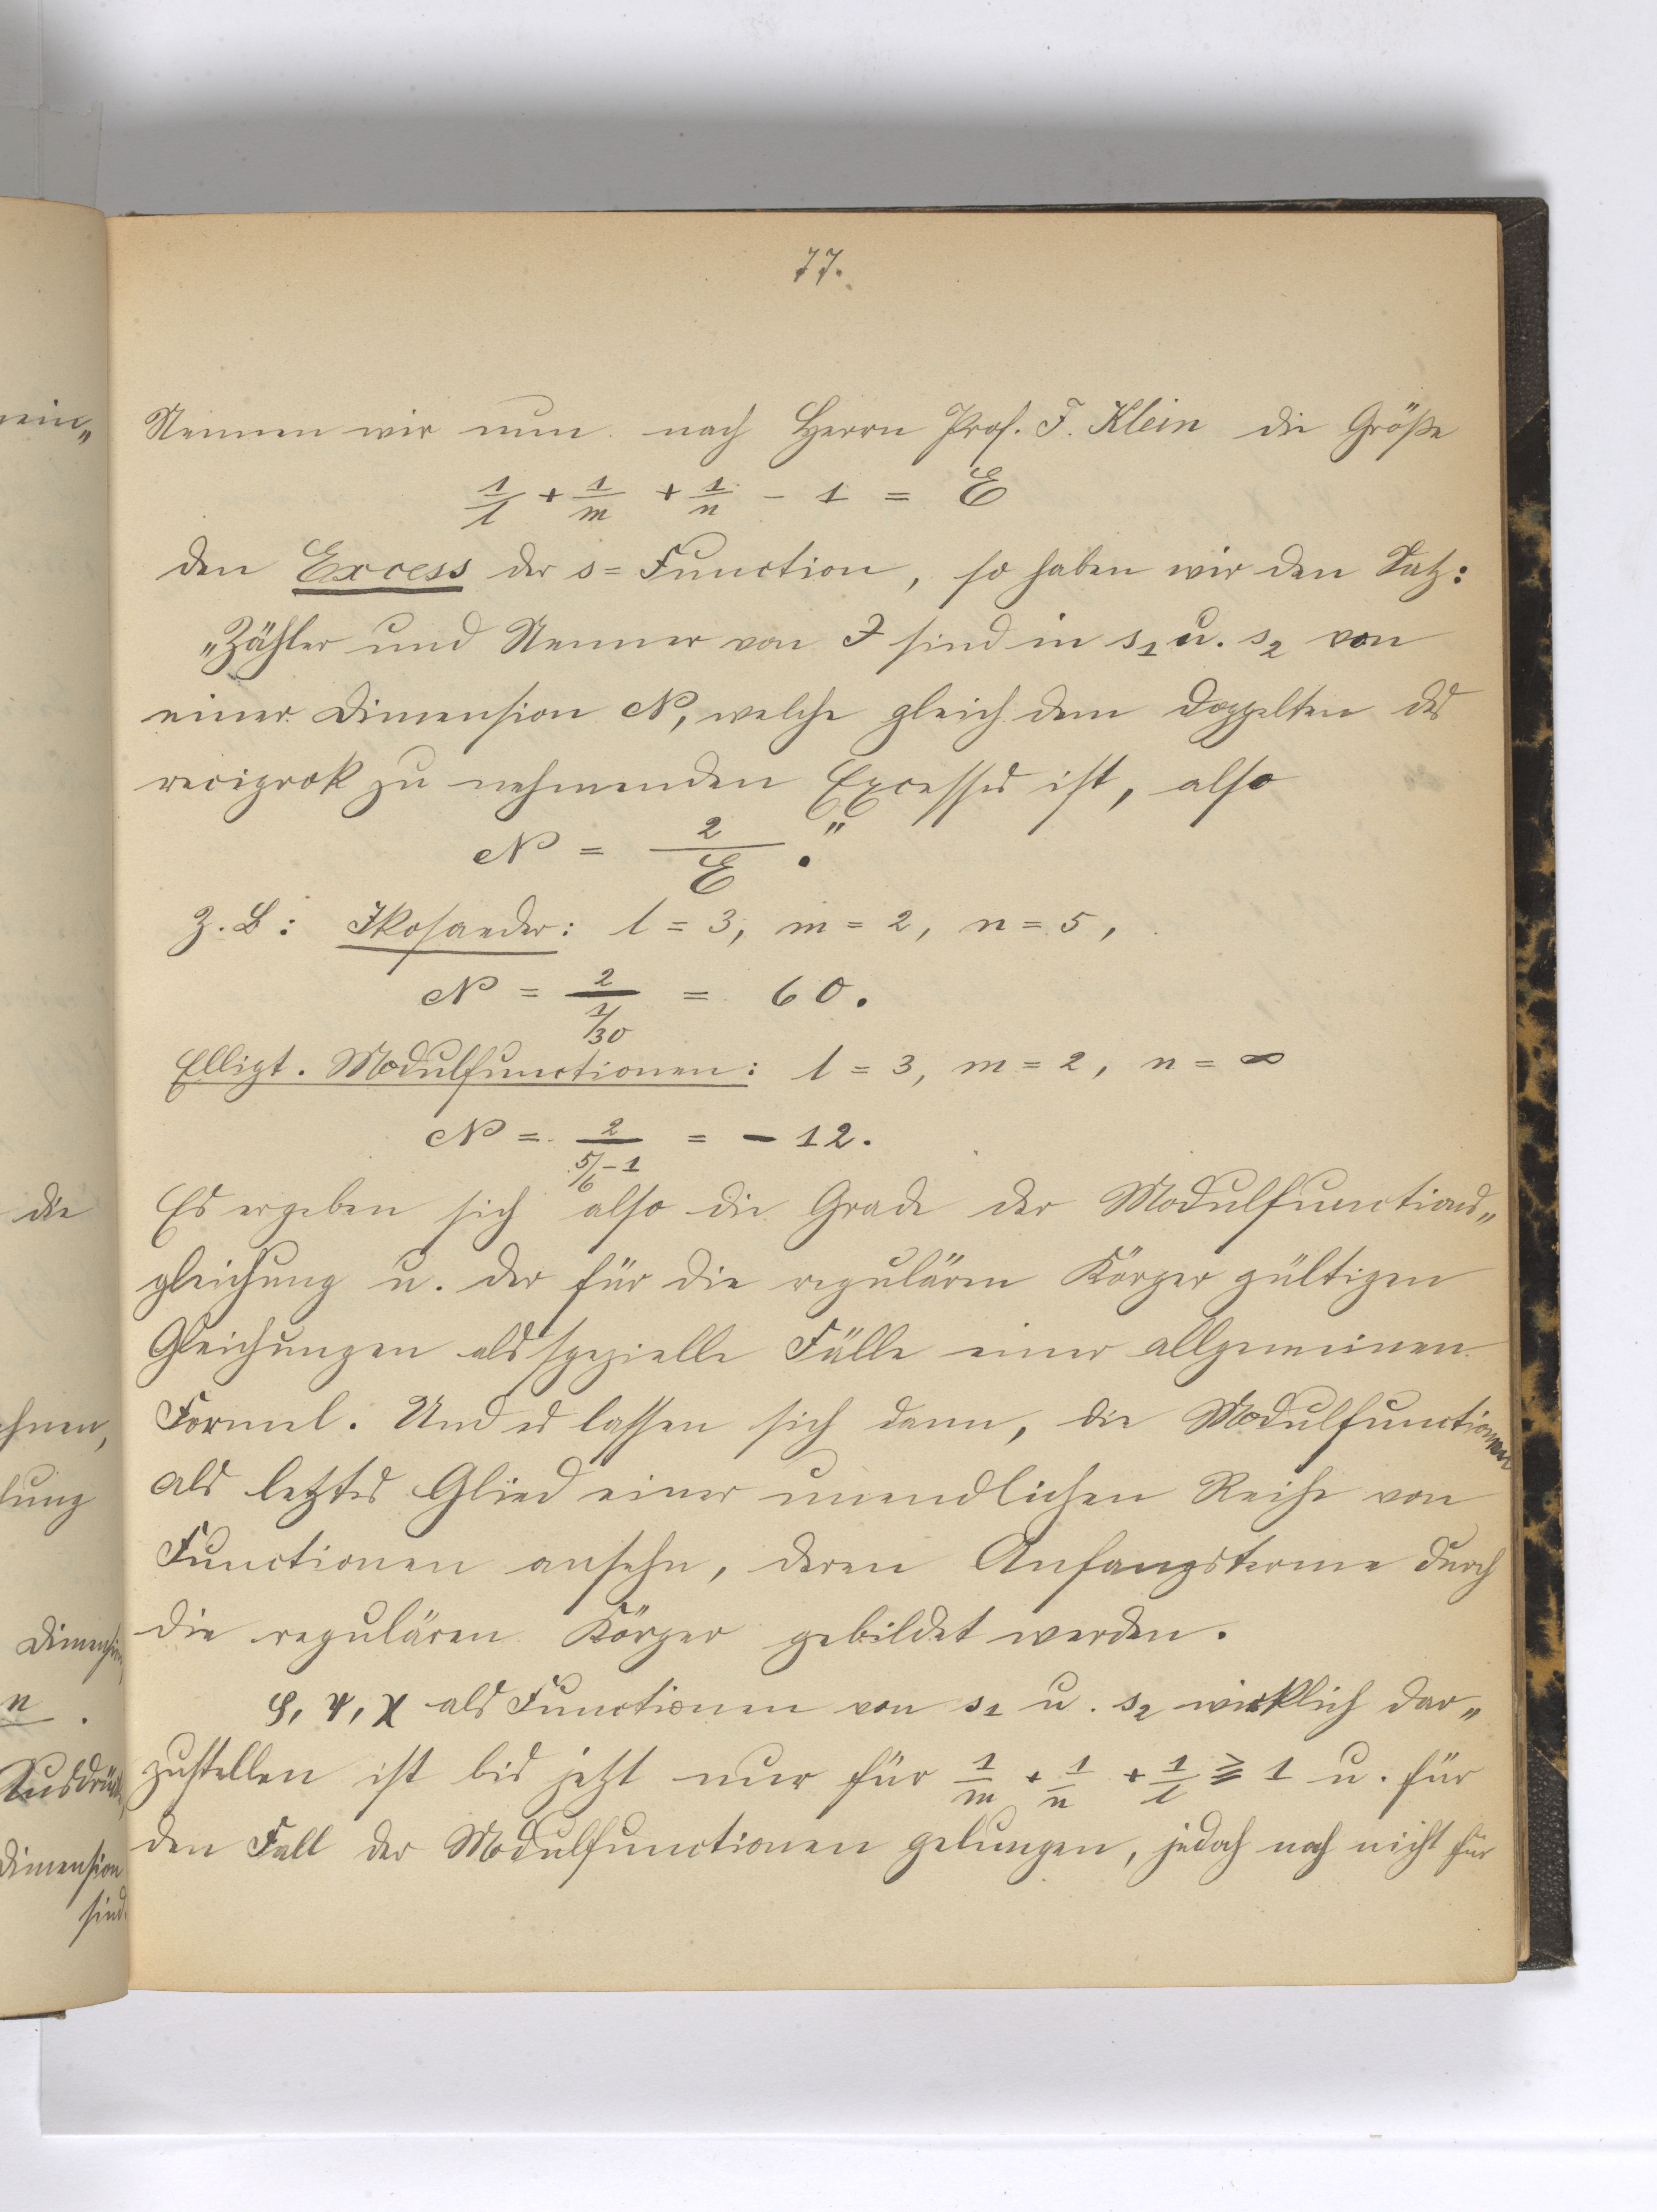 77.
Nennen wir nun nach Herrn Prof. F. Klein die Größe
1/l + 1/m + 1/n - 1 = E
den Excess der s=Function, so haben wir den Satz:
„Zähler und Nenner von J sind in s₁ u. s₂ von
einer Dimension N, welche gleich dem Doppelten des
reciprok zu nehmenden Excesses ist, also
N = 2/E .“
Z. B: Ikosaeder: l = 3, m = 2, n = 5,
N = 2/(1/30) = 60.
Ellipt. Modulfunctionen: l = 3, m = 2, n = ∞
N = 2/(5/6 - 1) = - 12.
Es ergeben sich also die Grade der Modulfunctions„
gleichung u. der für die regulären Körper gültigen
Gleichungen als spezielle Fälle einer allgemeinen
Formel. Und es lassen sich dann, die Modulfunctionen
als letztes Glied einer unendlichen Reihe von
Functionen ansehn, deren Anfangsterme durch
die regulären Körper gebildet werden.
φ, ψ, χ als Functionen von s₁ u. s₂ wirklich dar„
zustellen ist bis jetzt nur für 1/m + 1/n + 1/l ≧ 1 u. für
den Fall der Modulfunctionen gelungen, jedoch noch nicht für
ein„
die
hnen,
lung
Dimension
n .
Ausdrücke
Dimension
sind